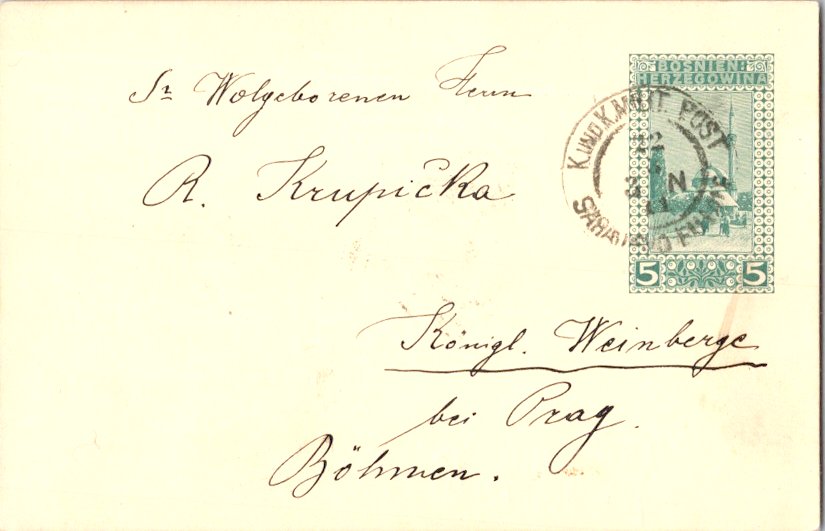 Sr Wolgeborenen Herrn
R. Krupička
Königl. Weinberge
bei Prag.
Böhmen.
BOSNIEN-
HERZEGOWINA
5 5
K.UND K.MILIT. POST
22
SARAJEVO